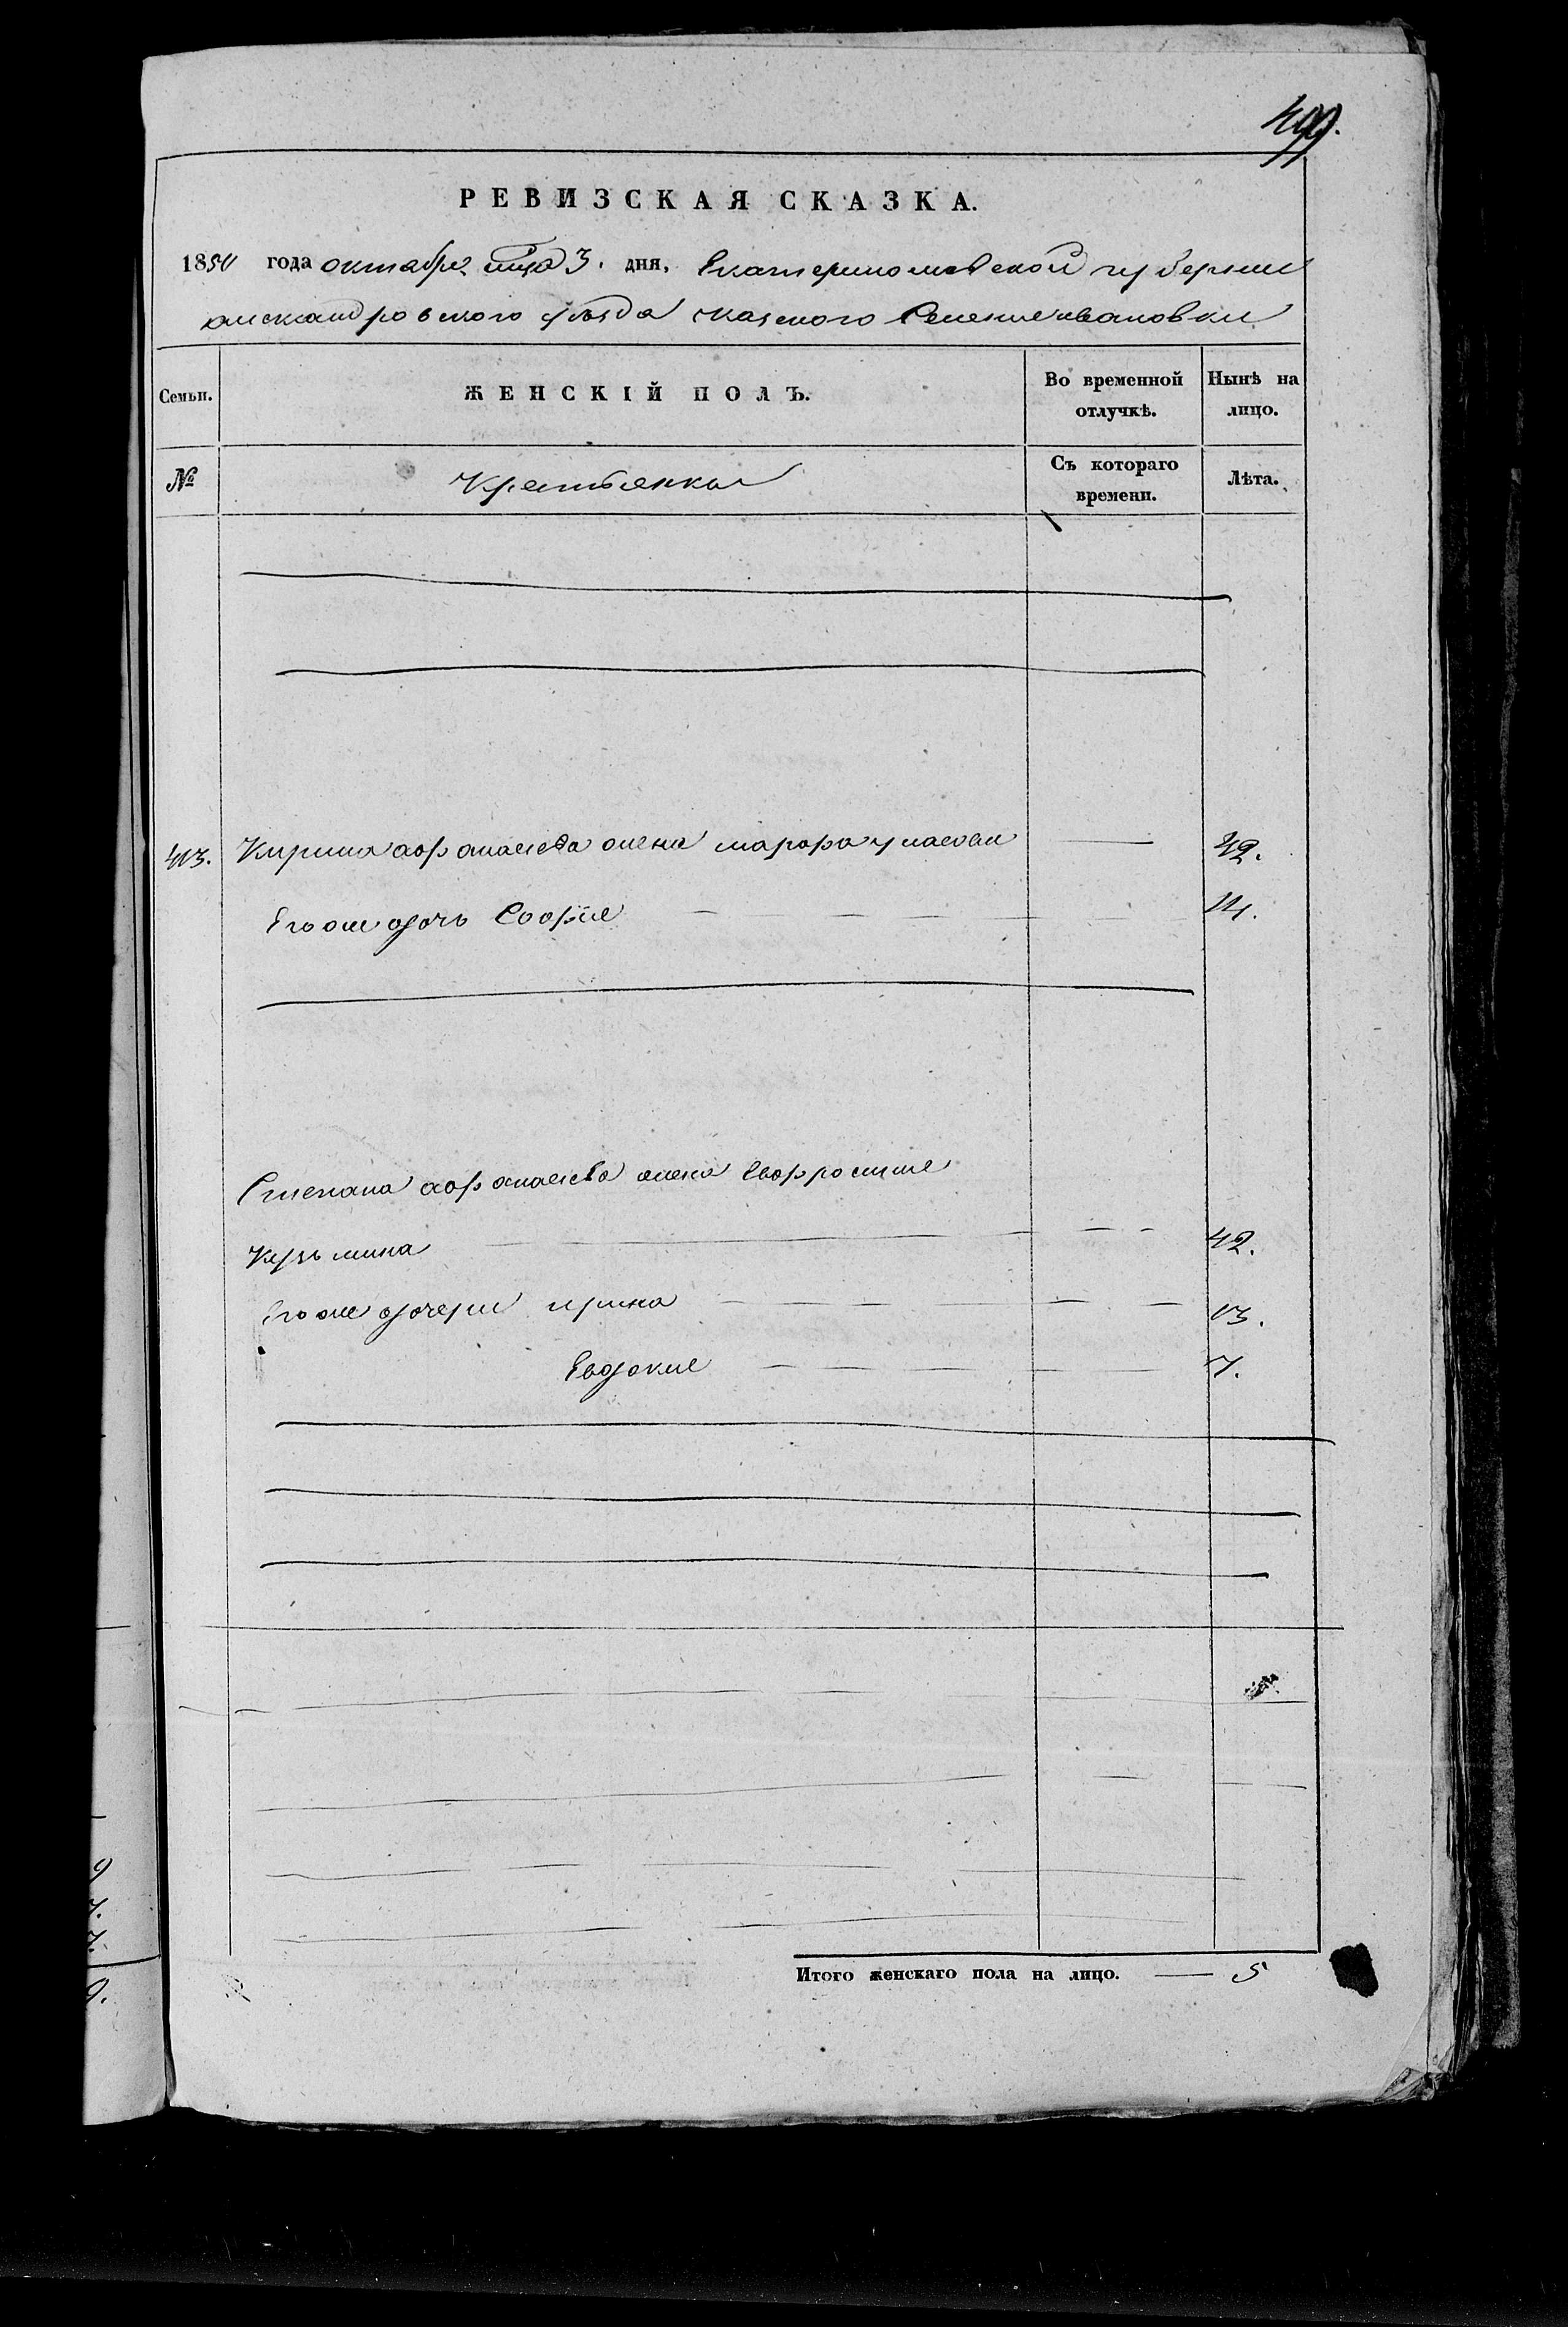 499.
РЕВИЗСКАЯ СКАЗКА.
1850 года октября мца 3. дня. Екатеринославской губернии
александровского уѣзда казенного Селения ивановки
Семьи. ЖЕНСКІЙ ПОЛЪ. Во временной отлучкѣ. Нынѣ на лицо.
№ Крестьянка Съ котораго времени. Лѣта.
413. Кирила афанасиева жена марфа 42.
Его же дочь Софія 14.
Степана афанасиева жена Евфросиния
Кузьмина 42.
Его же дочери ирина 13.
Евдокия 7.
Итого женскаго пола на лицо. 5